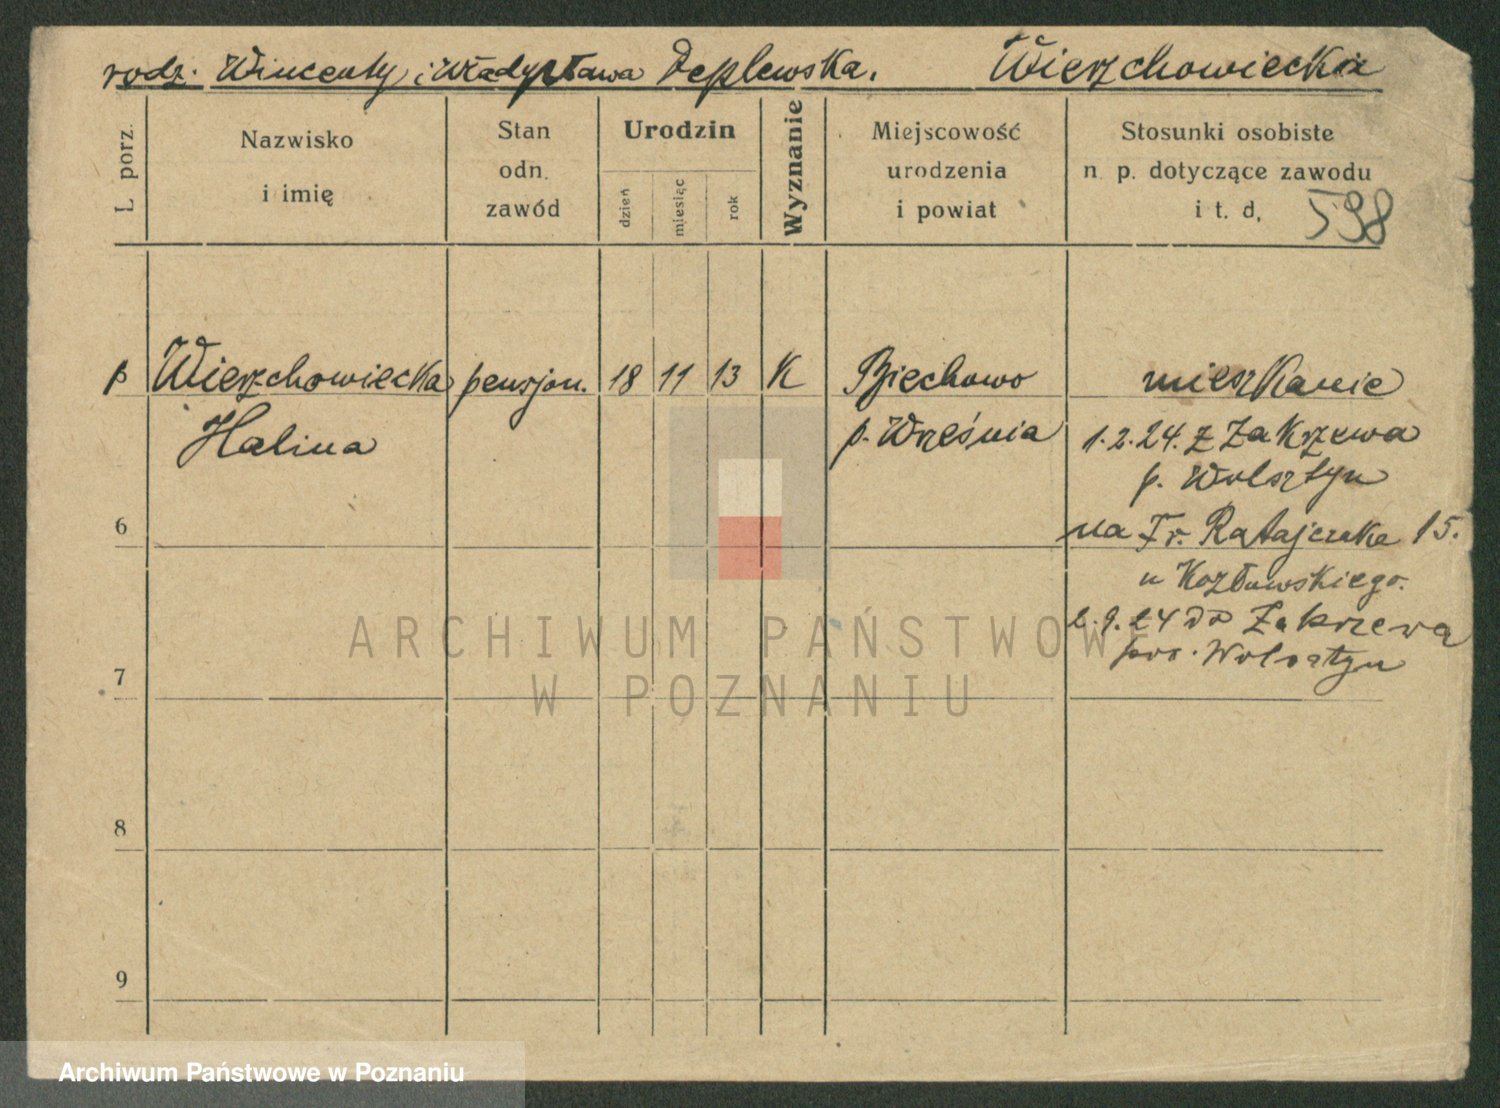 rodz. Wincenty i Władysława Deplewska. Wierzchowiecka
L porz.
Nazwisko
i imię
Stan
odn.
zawód
Urodzin
dzień
miesiąc
rok
Wyznanie
Miejscowość
urodzenia
i powiat
Stosunki osobiste
n. p. dotyczące zawodu
i t. d.
598
Wierzchowiecka pensjon. 18 11 13 K Biechowo mieszkanie
Halina p. Września 1.2.24. z Zakrzewa
p. Wolsztyn
6 na Fr. Ratajczaka 15.
u Kozłowskiego.
2.9.24 do Zakrzewa
pow. Wolsztyn
7
8
9
ARCHIWUM PAŃSTWOWE
W POZNANIU
Archiwum Państwowe w Poznaniu